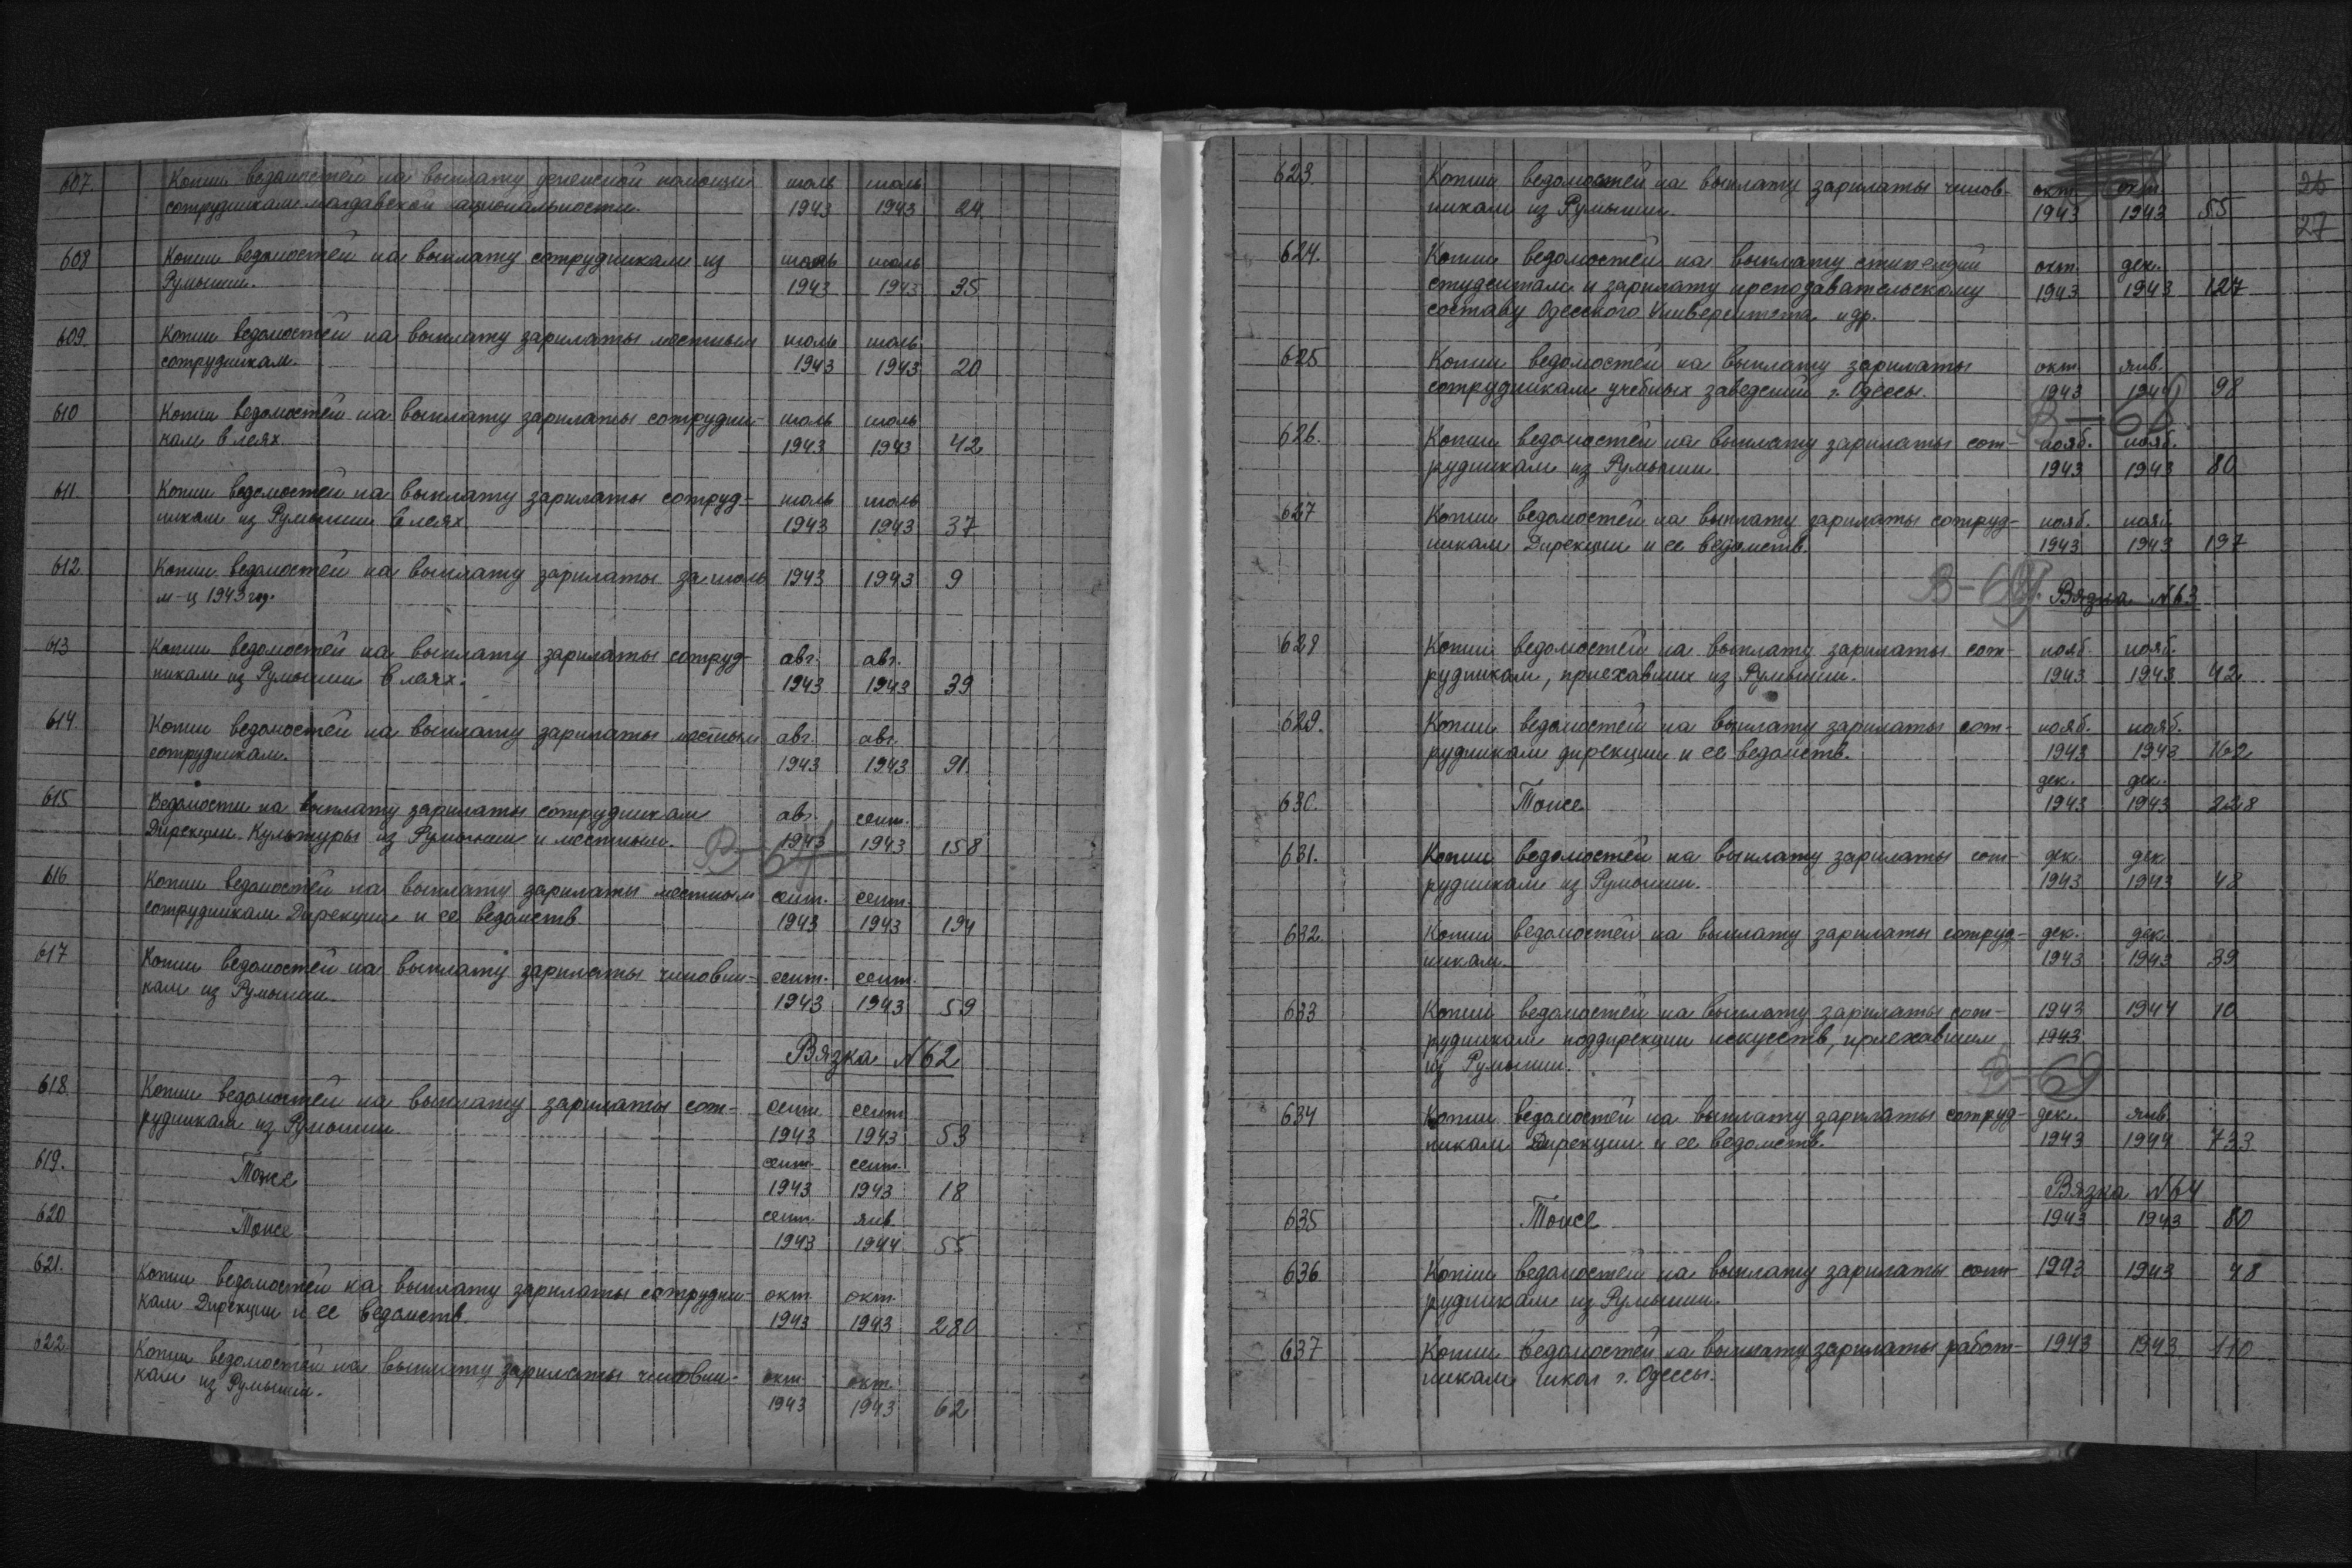 607. Копии ведомостей на выплату денежной помощи июль июль
сотрудникам молдавской национальности. 1943 1943 24.
608 Копии ведомостей на выплату сотрудникам из июль июль
Румынии. 1943 1943 35
609. Копии ведомостей на выплату зарплаты местным июль июль
сотрудникам. 1943 1943 20
610 Копии ведомостей на выплату зарплаты сотрудни- июль июль
кам в леях. 1943 1943 42
611. Копии ведомостей на выплату зарплаты сотруд- июль июль
никам из Румынии в леях 1943 1943 37
612. Копии ведомостей на выплату зарплаты за июль 1943 1943 9
м-ц 1943 год.
613 Копии ведомостей на выплату зарплаты сотруд- авг. авг.
никам из Румынии в леях. 1943 1943 39
614. Копии ведомостей на выплату зарплаты местным авг. авг.
сотрудникам. 1943 1943 91.
615 Ведомости на выплату зарплаты сотрудникам авг. сент.
Дирекции Культуры из Румынии и местным. 1943 1943 158
616 Копии ведомостей на выплату зарплаты местным сент. сент.
сотрудникам Дирекции и ее ведомств 1943 1943 194
617 Копии ведомостей на выплату зарплаты чиновни- сент. сент.
кам из Румынии. 1943 1943 59
Вязка N62
618. Копии ведомостей на выплату зарплаты сот- сент. сент.
рудникам из Румынии 1943 1943 53
619. Тоже сент. сент.
1943 1943 18
620 Тоже сент. янв.
1943 1944 55
621. Копии ведомостей на выплату зарплаты сотрудни- окт. окт.
кам Дирекции и ее ведомств. 1943 1943 280
622. Копии ведомостей на выплату зарплаты чиновни- окт. окт.
кам из Румынии. 1943 1943 62
26
27
623. Копии ведомостей на выплату зарплаты чинов- окт. окт.
никам из Румынии. 1943 1943 55
624. Копии ведомостей на выплату стипендий окт. дек.
студентам и зарплату преподавательскому 1943 1943 127
составу Одесского Университета и др.
625 Копии ведомостей на выплату зарплаты окт. янв.
сотрудникам учебных заведений г. Одессы. 1943 1944 98
626. Копии ведомостей на выплату зарплаты сот- нояб. нояб.
рудникам из Румынии 1943 1943 80
627 Копии ведомостей на выплату зарплаты сотруд- нояб. нояб.
никам Дирекции и ее ведомств. 1943 1943 197
Вязка N63
628 Копии ведомостей на выплату зарплаты сот- нояб. нояб.
рудникам, приехавших из Румынии. 1943 1943 42
629. Копии ведомостей на выплату зарплаты сот- нояб. нояб.
рудникам дирекции и ее ведомств. 1943 1943 162
дек. дек.
630. Тоже 1943 1943 228
631. Копии ведомостей на выплату зарплаты сот- дек. дек
рудникам из Румынии. 1943 1943 48
632. Копии ведомостей на выплату зарплаты сотруд- дек. дек
никам. 1943 1943 39
633 Копии ведомостей на выплату зарплаты сот- 1943 1944 10
рудникам поддирекции искусств, приехавшим 1943
из Румынии.
В-69
634 Копии ведомостей на выплату зарплаты сотруд- дек. янв
никам Дирекции и ее ведомств. 1943 1944 733
Вязка N64
635 Тоже 1943 1943 80
636 Копии ведомостей на выплату зарплаты сот- 1943 1943 48
рудникам из Румынии.
637 Копии ведомостей на выплату зарплаты работ- 1943 1943 110
никам школ г. Одессы.